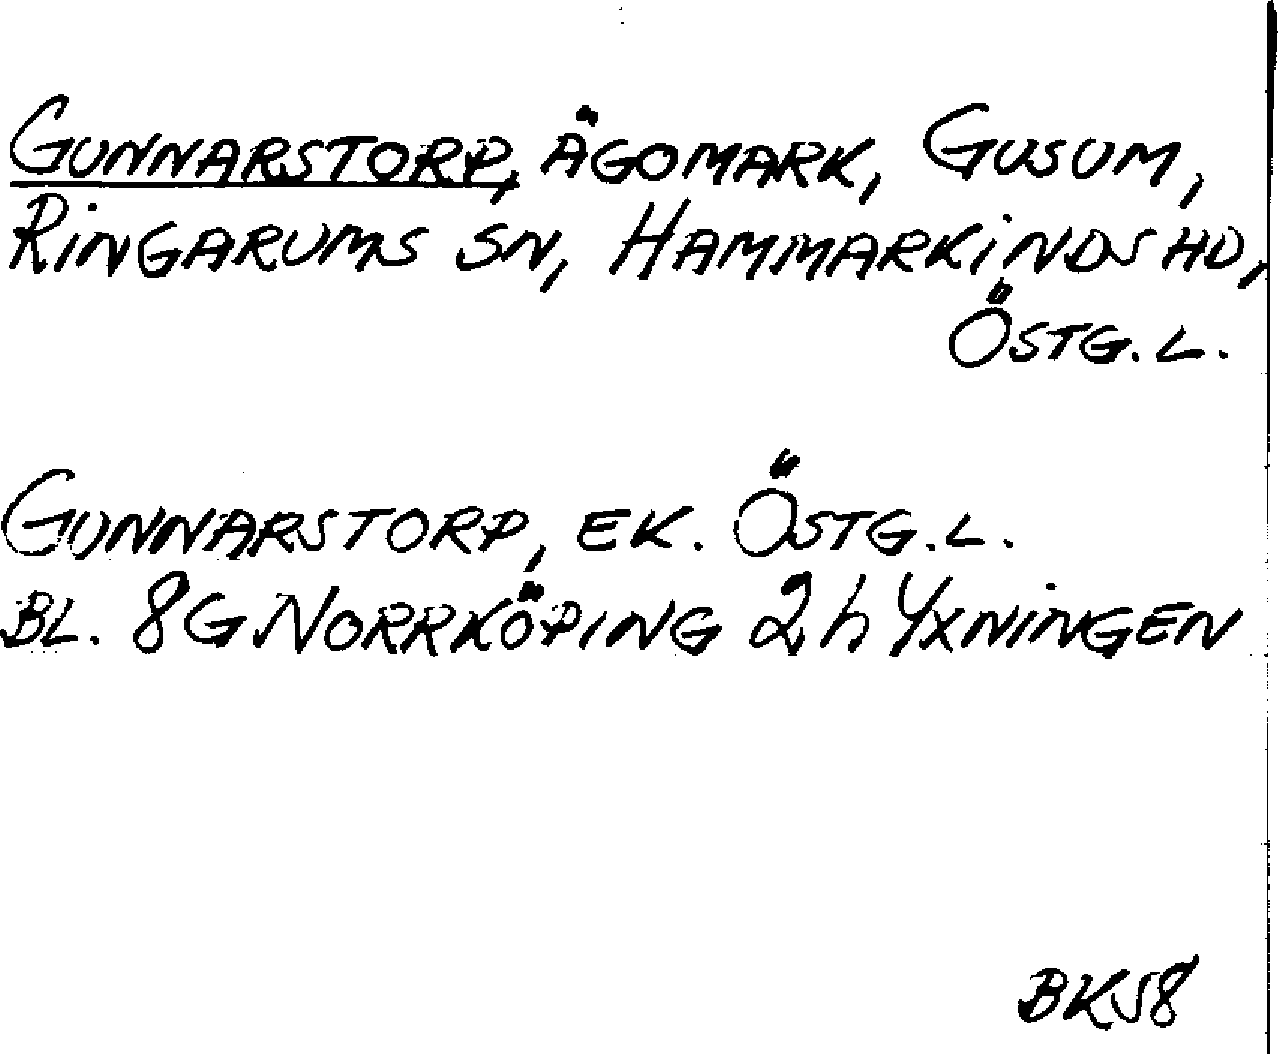 GUNNARSTORP, ÄGOMARK, GUSUM,
RINGARUMS SN, HAMMARKINDS HD,
ÖSTG. L.
GUNNARSTORP, EK. ÖSTG. L.
BL. 8G NORRKÖPING 2h YXNINGEN
BK58